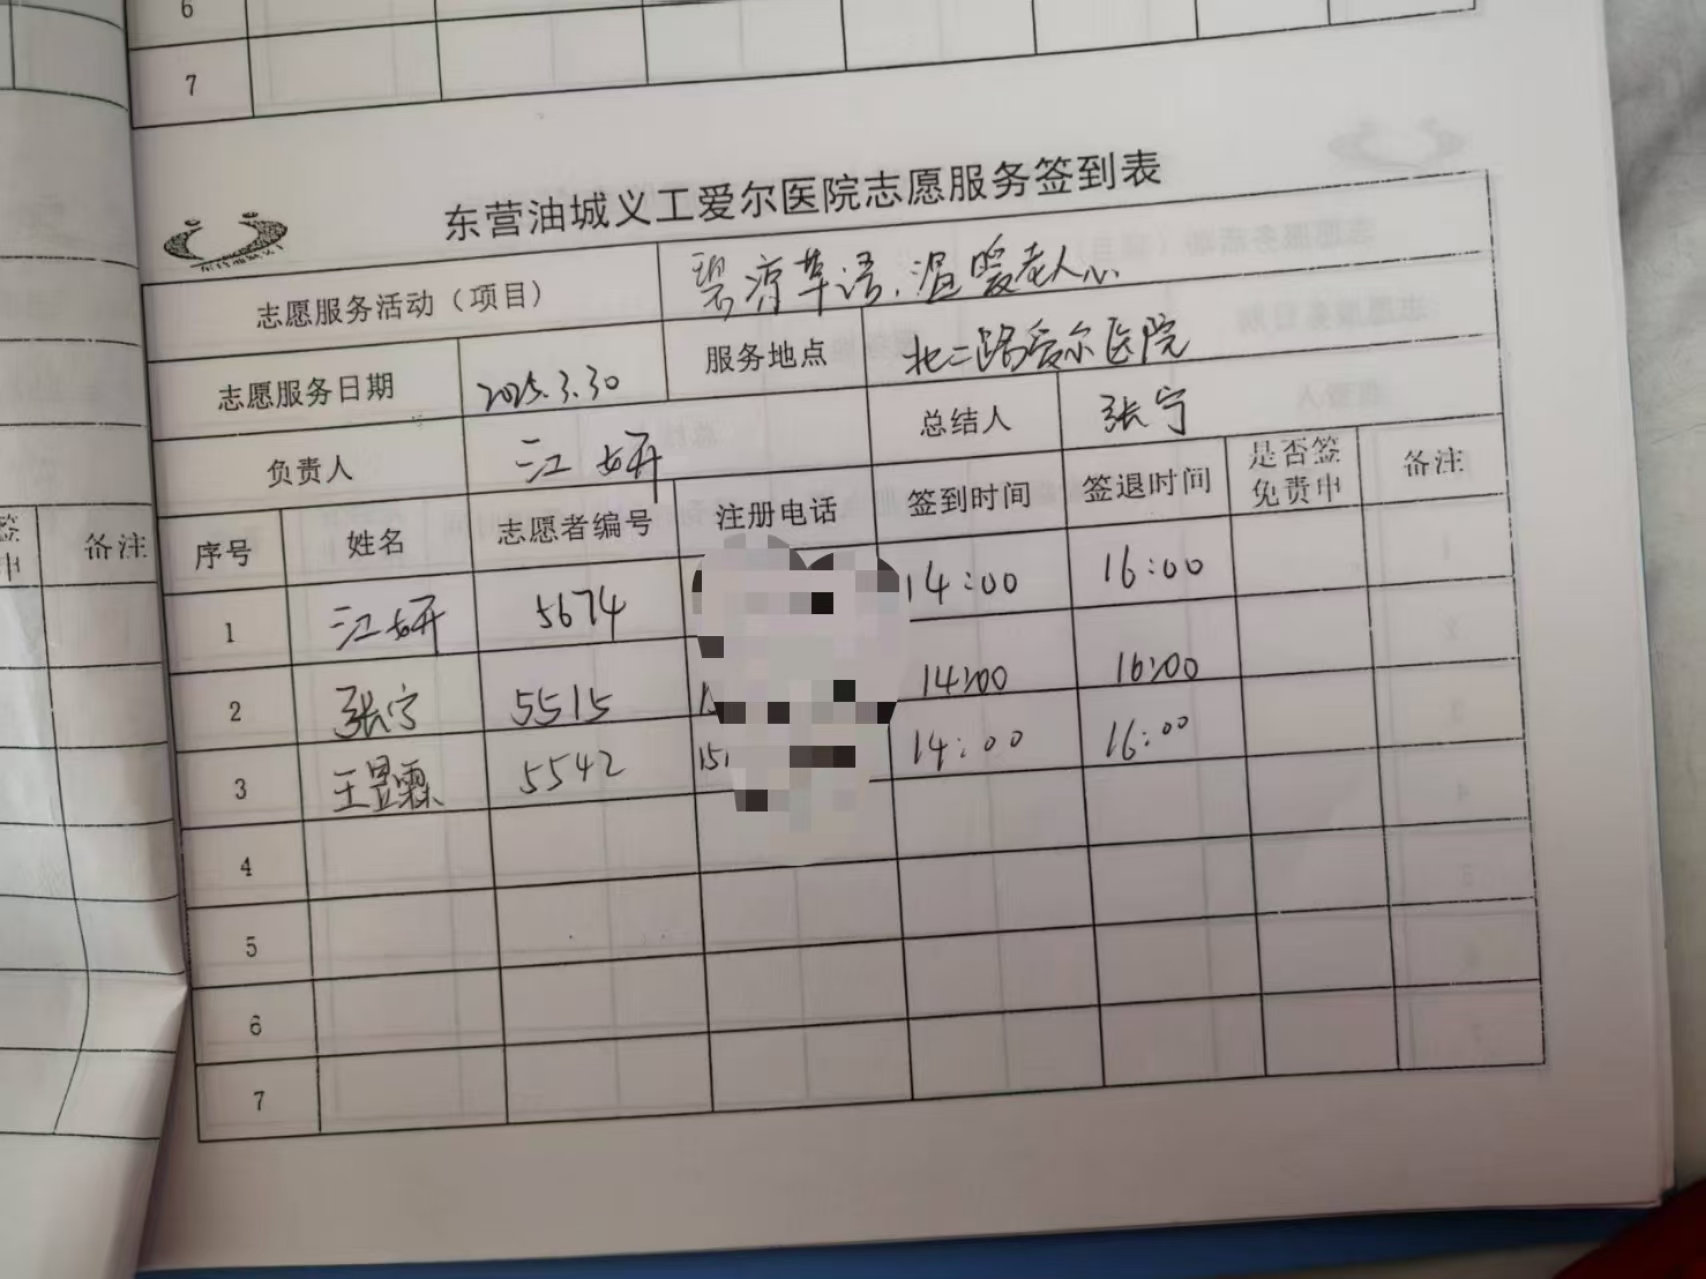 6
7
东营油城义工爱尔医院志愿服务签到表
志愿服务活动（项目） 碧疗草语，温暖老人心
志愿服务日期 2025.3.30 服务地点 北二路爱尔医院
负责人 江妍 总结人 张宁
序号 姓名 志愿者编号 注册电话 签到时间 签退时间 是否签免责申 备注
1 江妍 5674 14:00 16:00
2 张宁 5515 14:00 16:00
3 王昱霖 5542 151 14:00 16:00
4
5
6
7
签
申 备注